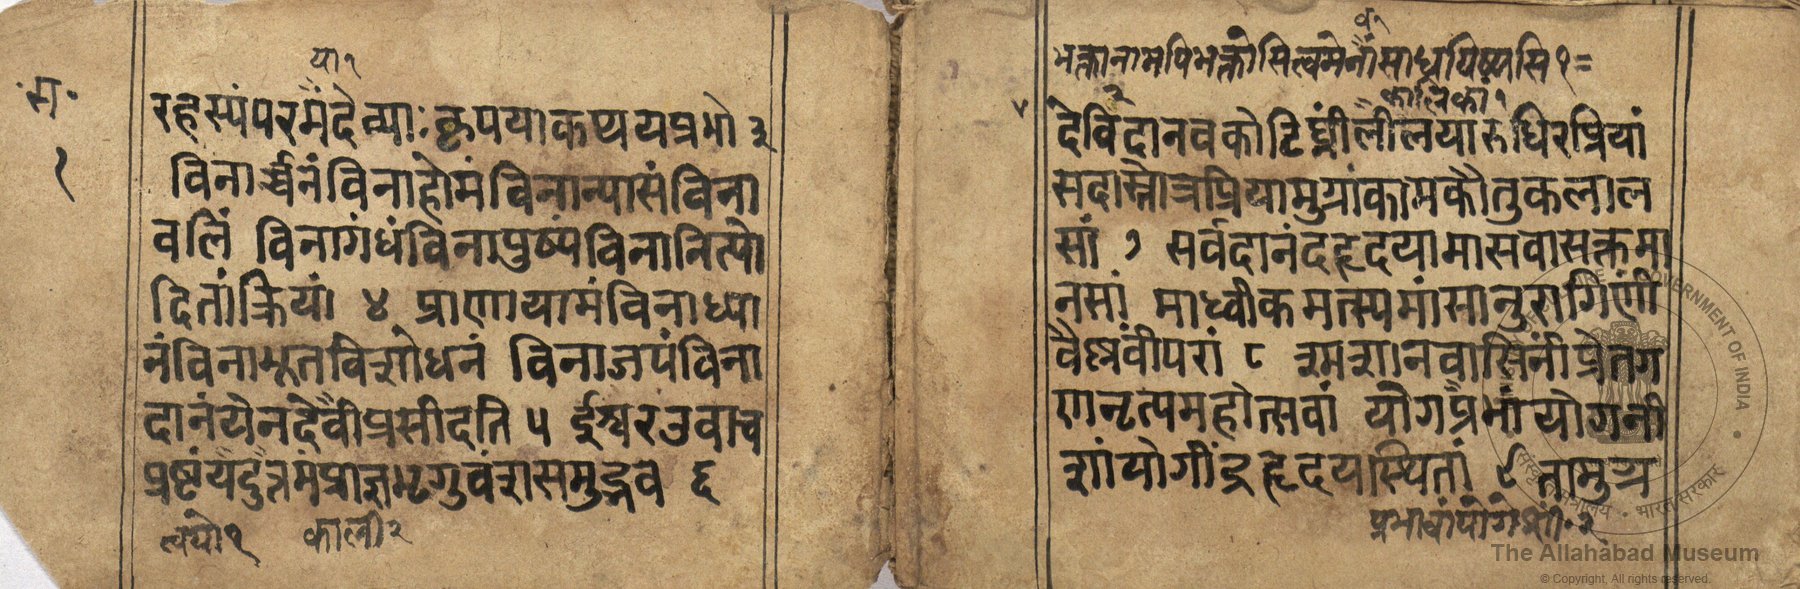 या १
म॰
१
रहस्यंपरमंदेव्याः कृपयाकथ्ययप्रभो ३
विनार्च्चनंविनाहोमंविनान्यासंविना
वलिं विनागंधंविनापुष्पंविनानित्यो
दितांक्रियां ४ प्राणायामंविनाध्या
नंविनाभूतविशोधनं विनाजपंविना
दानंयेनदेवीप्रसीदति ५ ईश्वरउवाच
प्रष्टंयदुत्तमंप्राज्ञभृगुवंशसमुद्भव ६
त्वयो १ काली २
वा १
भक्तानामपिभक्तोसित्वमेनांसाधयिष्यसि १=
२ कालिका १
देविंदानवकोटिघ्नींलीलयारुधिरप्रियां
सदास्तोत्रप्रियामुग्रांकामकौतुकलाल
सां ७ सर्वदानंदहृदयामासवासक्तमा
नसां माध्वीकमत्स्यमांसानुरागिणीं
वैष्णवींपरां ८ श्मशानवासिनींप्रेतग
णनृत्यमहोत्सवां योगप्रभांयोगनी
शांयोगींद्रहृदयस्थितां ९ तामुग्र
प्रभावांयोगेशीं २
GOVERNMENT OF INDIA
संस्कृति मंत्रालय • भारत सरकार
The Allahabad Museum
© Copyright, All rights reserved.